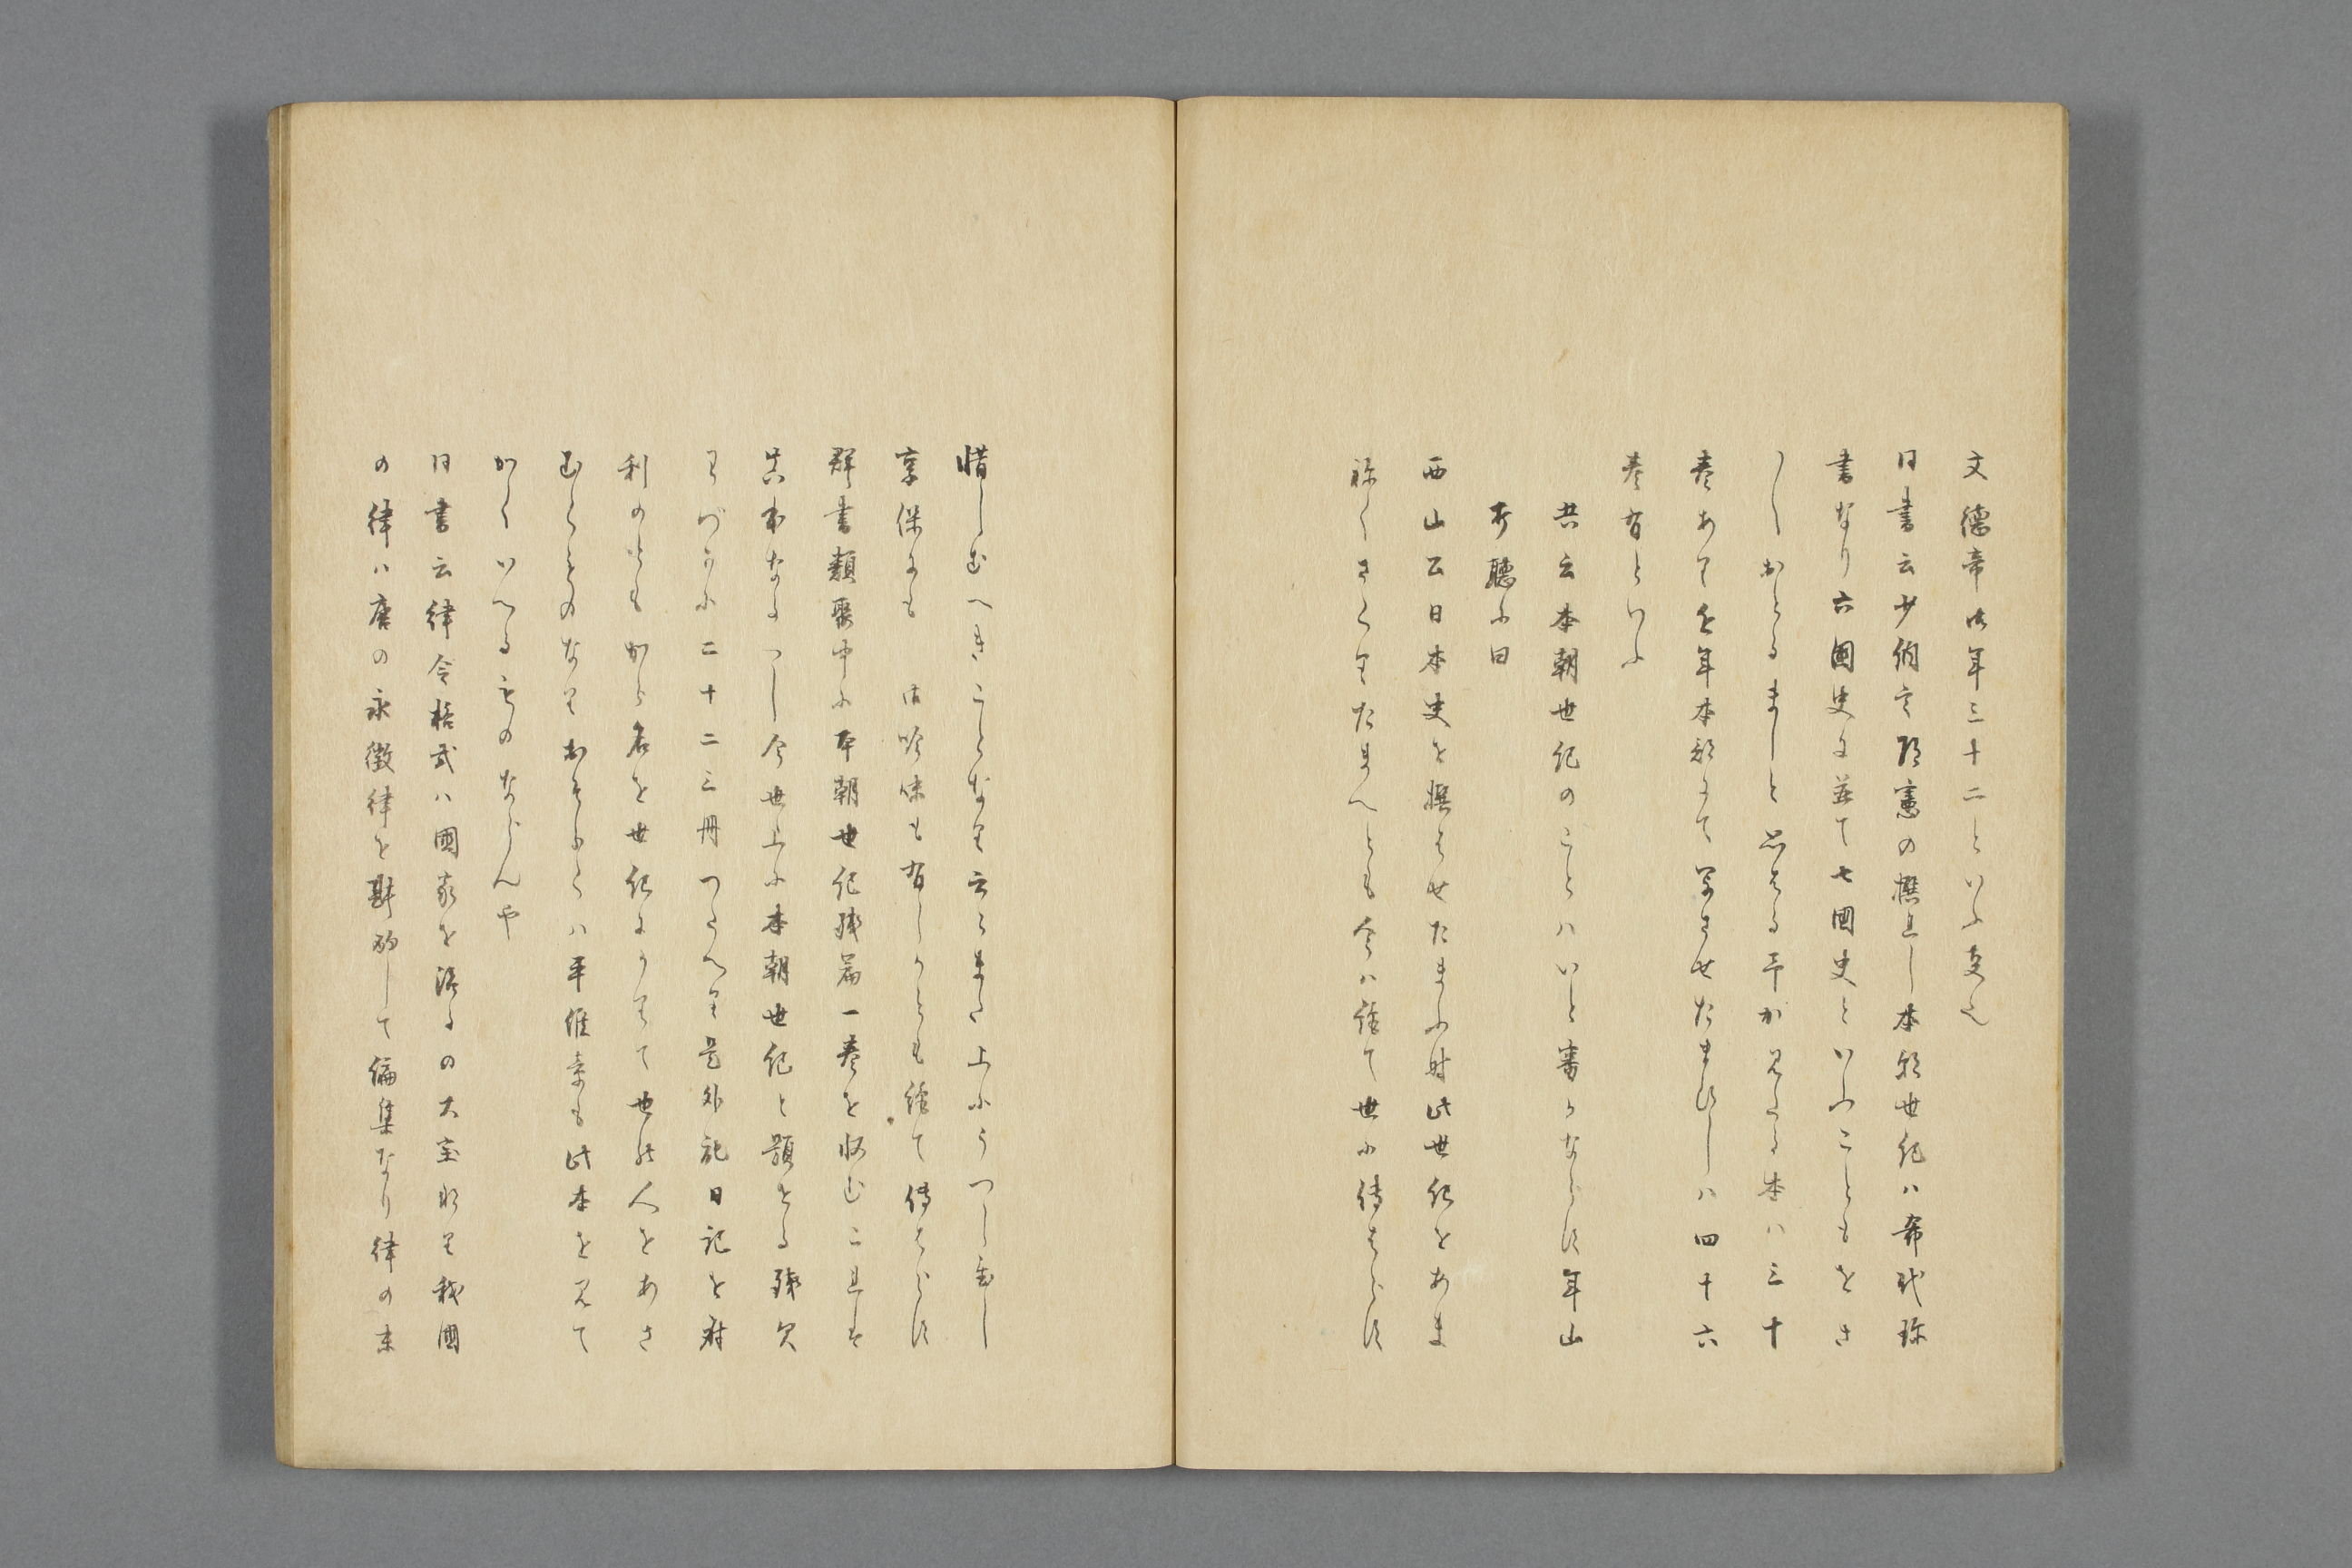 文徳帝御年三十二といふ支へ
同書云少納言通憲の撰れし本朝世紀ハ希代珍
書なり六國史に並て七國史といふこともをさ
〱おとるましと思はる予か見たる本ハ三十
巻ありて近年本朝にて写させたまひしハ四十六
巻有といふ
共云本朝世紀のことハいと審かならす年山
打聴に曰
西山公日本史を撰はせたまふ時此世紀をあま
ねくさくりたまへとも今ハ絶て世に傳はらす
惜しむへきことなり云々また上にうつし
享保にも 御吟味も有しかとも絶て傳はらす
群書類聚中に本朝世紀残篇一巻を収むこれは
其本なるへし今世上に本朝世紀と題せる残欠
わづかに二十二三冊つたへり是外記日記を射
利のともから名を世紀にかりて世の人をあさ
むくものなりおもふに
ハ平惟章も此本を見て
かくいへるものならんや
同書云律令格式ハ國家を治るの大宝なり我國
の律ハ唐の永徽律を斟酌して編集なり律の末